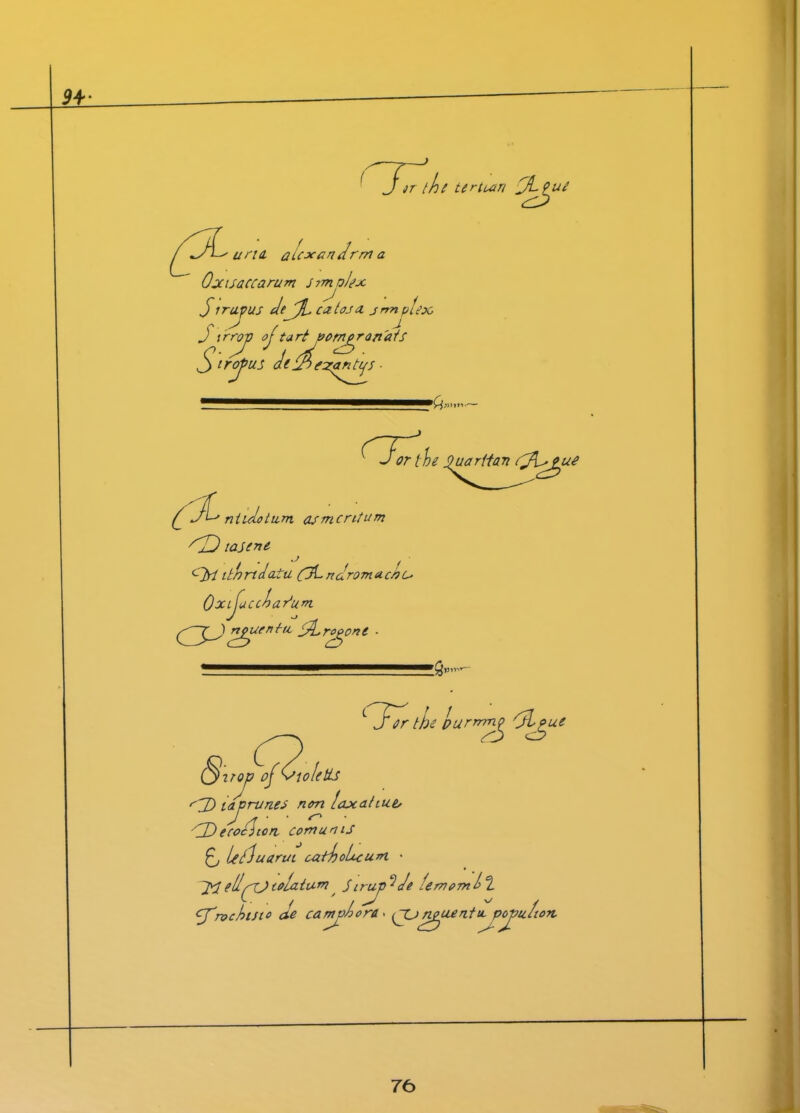 94.
For the tertian Ague
Auria alexandrina
Oxisaccarum simplex
Sirupus de Acatosa simplex
Sirrop of tart pomgranats
Siropus de Bezantijs.
For the Quarttan Ague
Antidotum asmeritum
Diasene
Mithridatu Andromacho
Oxisuccharum
Unguentu Aragone.
For the burning Ague
Sirop of Violetts
Diaprunes non laxative
Decoction comunis
Electuarui catholicum.
Mell Violatum, Sirup de lemom
Trochisio de camphora. Unguentu populion
76